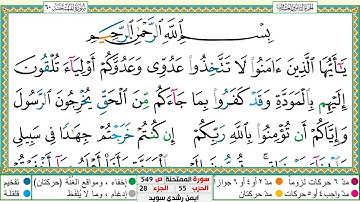 سُورَةُ المُمْتَحنَة ٦٠
بِسْمِ ٱللَّهِ ٱلرَّحْمَٰنِ ٱلرَّحِيمِ
يَٰٓأَيُّهَا ٱلَّذِينَ ءَامَنُوا۟ لَا تَتَّخِذُوا۟ عَدُوِّى وَعَدُوَّكُمْ أَوْلِيَآءَ تُلْقُونَ
إِلَيْهِم بِٱلْمَوَدَّةِ وَقَدْ كَفَرُوا۟ بِمَا جَآءَكُم مِّنَ ٱلْحَقِّ يُخْرِجُونَ ٱلرَّسُولَ
وَإِيَّاكُمْ أَن تُؤْمِنُوا۟ بِٱللَّهِ رَبِّكُمْ إِن كُنتُمْ خَرَجْتُمْ جِهَٰدًا فِى سَبِيلِى
مدّ ٦ حركات لزوماً مدّ ٢ أو ٤ أو ٦ جوازاً إخفاء، ومواقع الغنّة (حركتان) تفخيم
مدّ واجب ٤ أو ٥ حركات مدّ حركتان إدغام، وما لا يُلفظ قلقلة
سورة الممتحنة ص 549
الحزب 55 الجزء 28
ايمن رشدي سويد